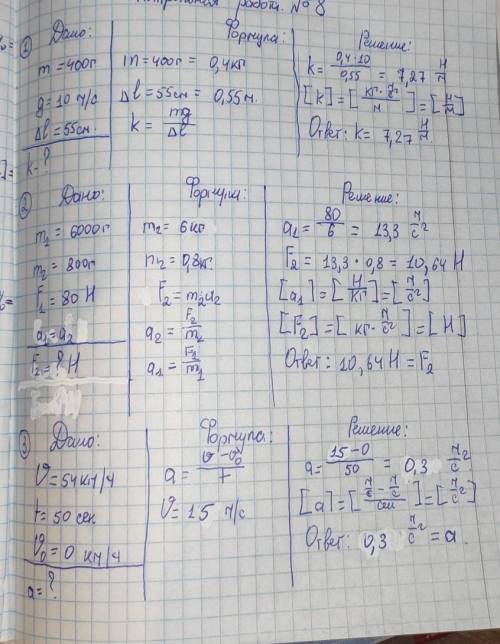 Контрольная работа №8
① Дано:
m = 400г
g = 10 м/с
Δl = 55см.
k - ?
Формула:
m = 400г = 0,4кг
Δl = 55см = 0,55м.
k = mg/Δl
Решение:
k = 0,4·10/0,55 = 7,27 Н/м
[k] = [ ] = [Н/м]
Ответ: k = 7,27 Н/м
② Дано:
m₁ = 6000г
m₂ = 800г
F₁ = 80 Н
a₁ = a₂
F₂ = ? Н
Формула:
m₂ = 6кг
m₂ = 0,8кг.
F₂ = m₂a₂
a₂ = F₂/m₂
a₁ = F₁/m₁
Решение:
a₁ = 80/6 = 13,3 м/с²
F₂ = 13,3 · 0,8 = 10,64 Н
[a₁] = [Н/кг] = [м/с²]
[F₂] = [кг· м/с²] = [Н]
Ответ: 10,64 Н = F₂
③ Дано:
υ = 54 км/ч
t = 50 сек
υ₀ = 0 км/ч
a = ?
Формула:
a = υ - υ₀/t
υ = 15 м/с
Решение:
a = 15-0/50 = 0,3 м/с²
[a] = [м/с - м/с/сек] = [м/с²]
Ответ: 0,3 м/с² = a.